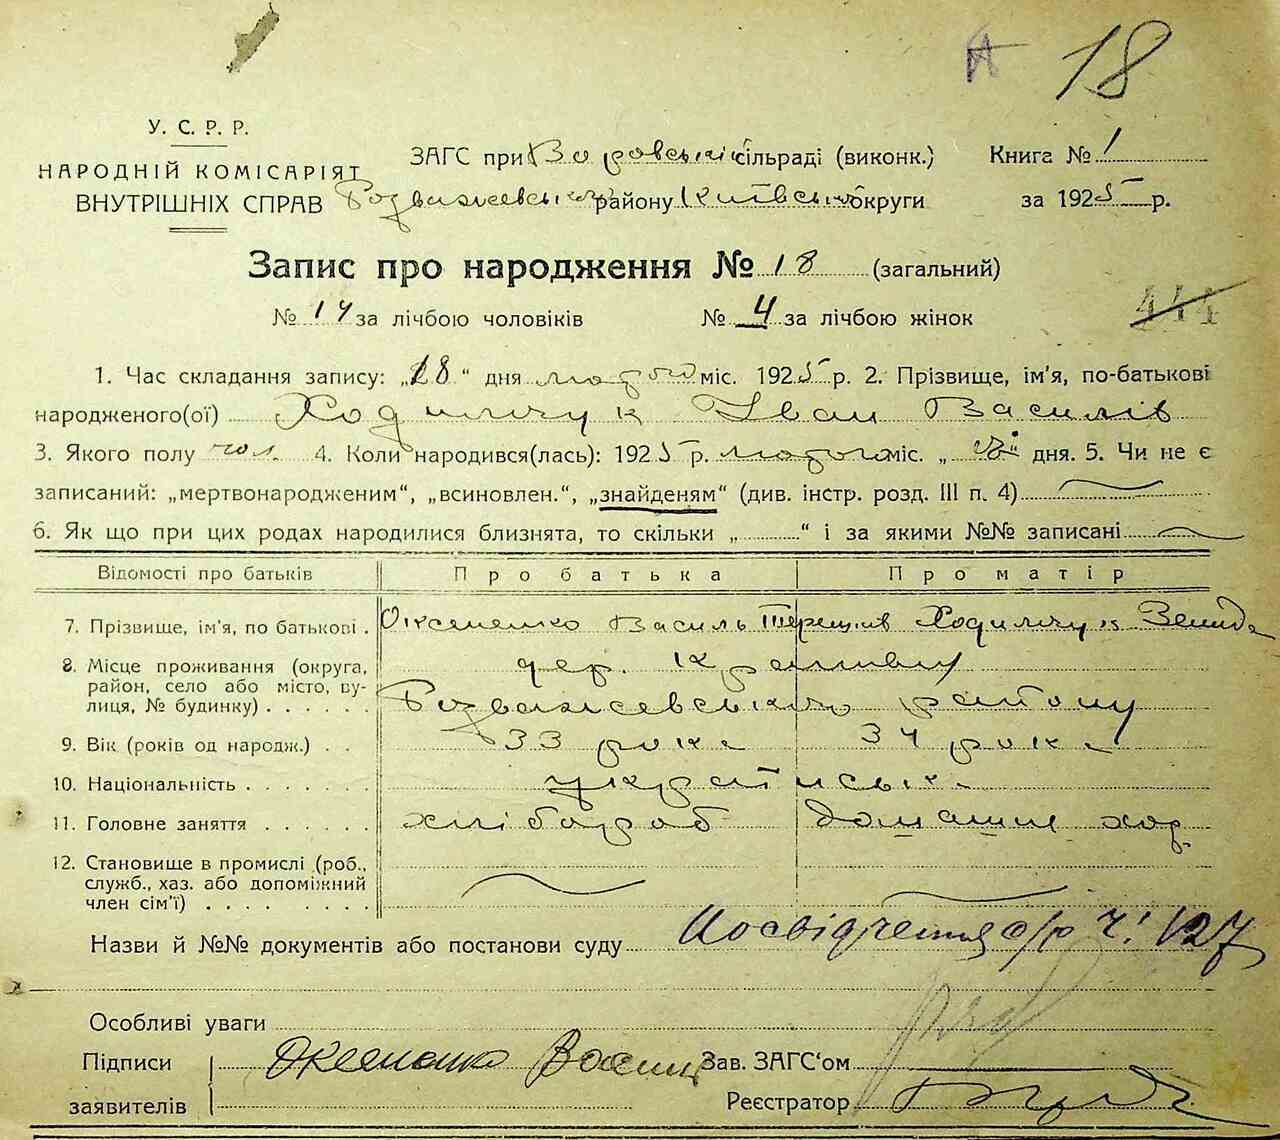 18
У. С. Р. Р.
НАРОДНІЙ КОМІСАРІЯТ
ВНУТРІШНІХ СПРАВ
ЗАГС при сільраді (виконк.) Книга № 1
Розважевського району Київської округи за 1925 р.
Запис про народження № 18 (загальний)
№ 14 за лічбою чоловіків № 4 за лічбою жінок
444
1. Час складання запису: „18“ дня лютого міс. 1925 р. 2. Прізвище, ім'я, по-батькові
народженого(ої) Ходимчук Іван Василів
3. Якого полу чол. 4. Коли народився(лась): 1925 р. лютого міс. „ “ дня. 5. Чи не є
записаний: „мертвонародженим“, „всиновлен.“, „знайденям“ (див. інстр. розд. III п. 4)
6. Як що при цих родах народилися близнята, то скільки „ “ і за якими №№ записані
Відомості про батьків Про батька Про матір
7. Прізвище, ім'я, по батькові . Оксененко Василь Терешків Ходимчук Зенида
8. Місце проживання (округа, район, село або місто, вулиця, № будинку) . . . . . .
дер. Кропивну
Розважевського району
9. Вік (років од народж.) . . 33 рока 34 рока
10. Національність . . . . . . . українська
11. Головне заняття . . . . . . хлібороб домашнє хоз.
12. Становище в промислі (роб.,
служб., хаз. або допоміжний
член сім'ї) . . . . . . . .
Назви й №№ документів або постанови суду Посвідчення с/р ч. 127
Особливі уваги
Підписи
заявителів
Оксененко Василь
Зав. ЗАГС'ом
Реєстратор